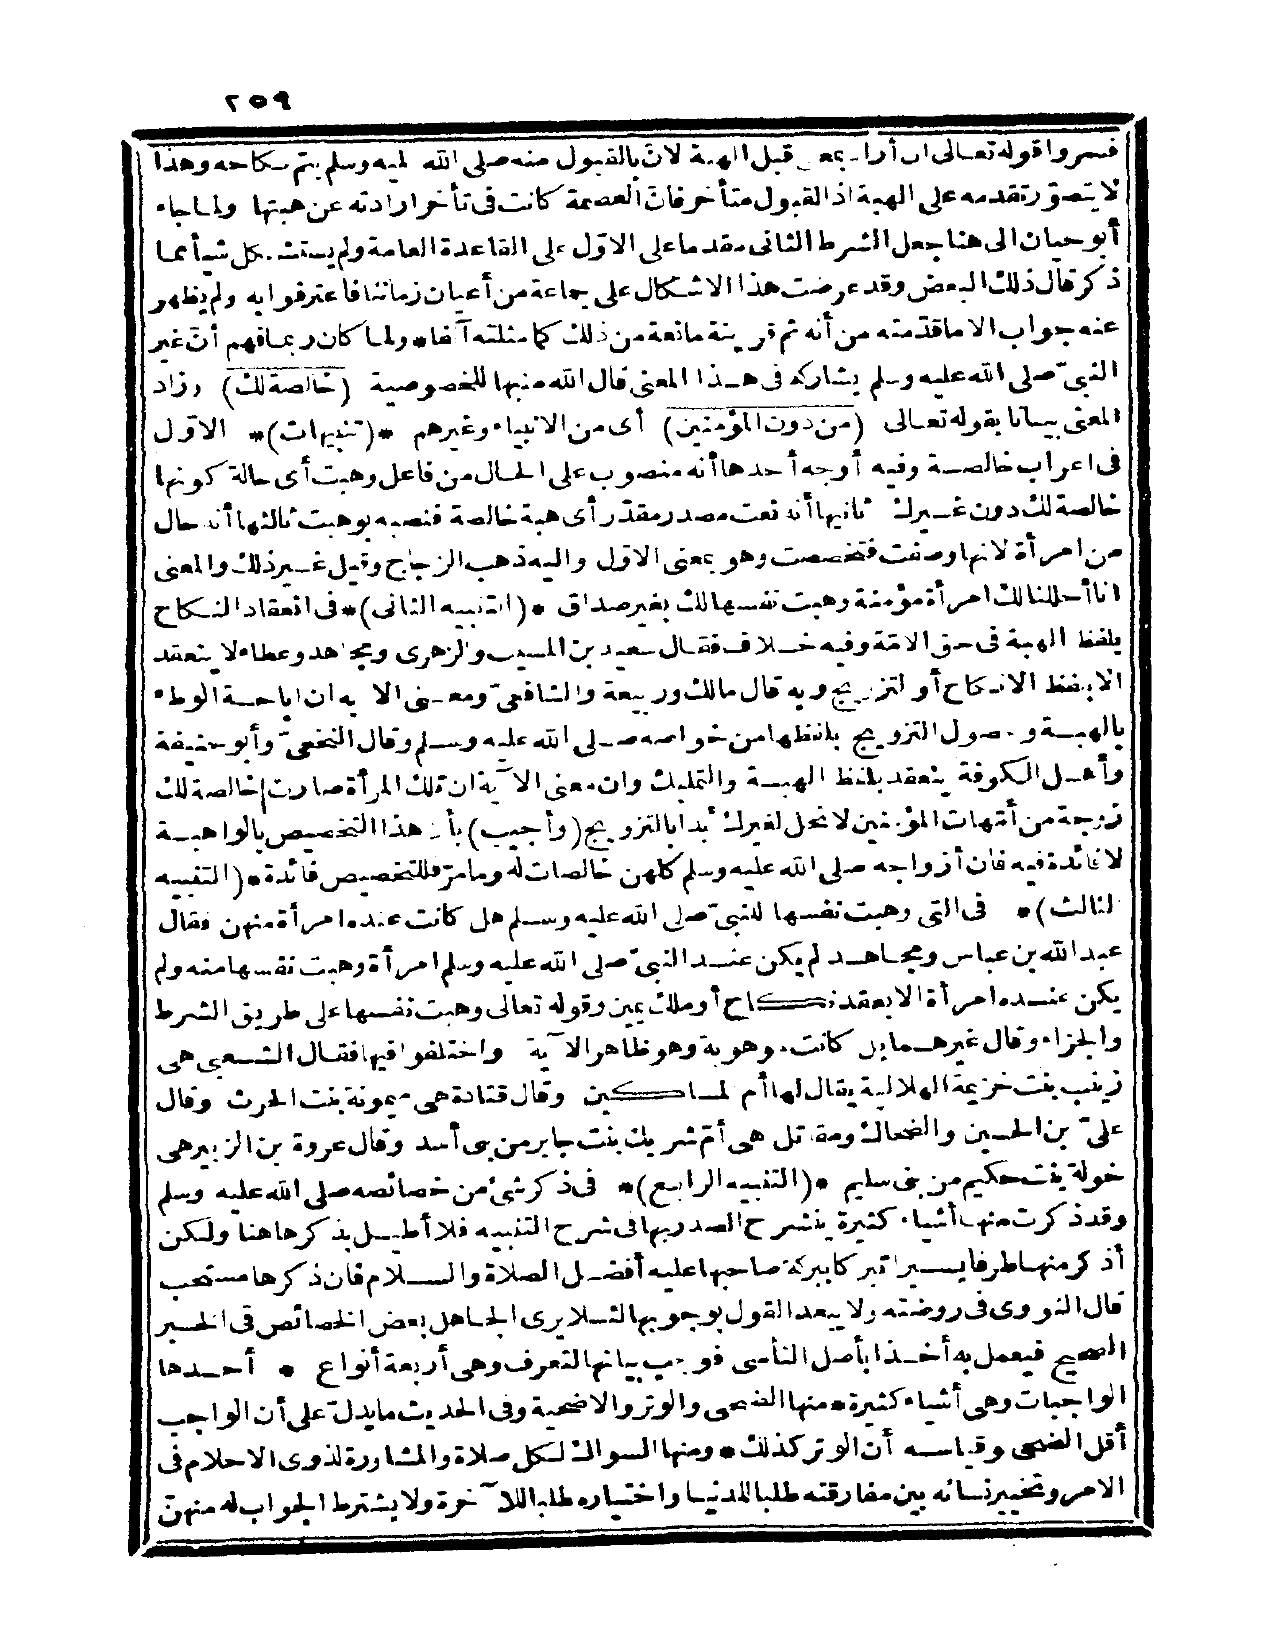 ٢٥٩
فسروا قوله تعالى ان أراد بمعنى قبل الهبة لانّ بالقبول منه صلى الله عليه وسلم يتم نكاحه وهذا
لا يتصوّر تقدمه على الهبة اذ القبول متأخر فانّ العصمة كانت فى تأخر ارادته عن هبتها ولما جاء
أبو حيان الى هنا جعل الشرط الثانى مقدما على الاوّل على القاعدة العامة ولم يستشكل شيأ مما
ذكر قال ذلك البعض وقد عرضت هذا الاشكال على جماعة من أعيان زماننا فاعترفوا به ولم يظهر
عنه جواب الا ما قدّمته من أنه ثم قرينة مانعة من ذلك كما مثلته آنفا * ولما كان ربما فهم أنّ غير
النبىّ صلى الله عليه وسلم يشاركه فى هذا المعنى قال الله منبها للخصوصية (خالصة لك) وزاد
المعنى بيانا بقوله تعالى (من دون المؤمنين) أى من الانبياء وغيرهم *(تنبيهات)* الاوّل
فى اعراب خالصة وفيه أوجه أحدها أنه منصوب على الحال من فاعل وهبت أى حالة كونها
خالصة لك دون غيرك ثانيها أنه نعت مصدر مقدّر أى هبة خالصة فنصبه بوهبت ثالثها أنه حال
من امرأة لانها وصفت فتخصصت وهو بمعنى الاوّل واليه ذهب الزجاج وقيل غير ذلك والمعنى
انا أحللنا لك امرأة مؤمنة وهبت نفسها لك بغير صداق *(التنبيه الثانى)* فى انعقاد النكاح
بلفظ الهبة فى حق الامّة وفيه خلاف فقال سعيد بن المسيب والزهرى ومجاهد وعطاء لا ينعقد
الا بلفظ الانكاح أو التزويج وبه قال مالك وربيعة والشافعىّ ومعنى الآية ان اباحة الوطء
بالهبة وحصول التزويج بلفظها من خواصه صلى الله عليه وسلم وقال النخعىّ وأبو حنيفة
وأهل الكوفة ينعقد بلفظ الهبة والتمليك وان معنى الآية ان تلك المرأة صارت خالصة لك
زوجة من أمّهات المؤمنين لا تحل لغيرك أبدا بالتزويج (وأجيب) بأن هذا التخصيص بالواهبة
لا فائدة فيه فان أزواجه صلى الله عليه وسلم كلهن خالصات له وما مرّ فللتخصيص فائدة *(التنبيه
الثالث)* فى التى وهبت نفسها للنبىّ صلى الله عليه وسلم هل كانت عنده امرأة منهن فقال
عبد الله بن عباس ومجاهد لم يكن عند النبىّ صلى الله عليه وسلم امرأة وهبت نفسها منه ولم
يكن عنده امرأة الا بعقد نكاح أو ملك يمين وقوله تعالى وهبت نفسها على طريق الشرط
والجزاء وقال غيرهما بل كانت موهوبة وهو ظاهر الآية واختلفوا فيها فقال الشعبى هى
زينب بنت خزيمة الهلالية يقال لها أم المساكين وقال قتادة هى ميمونة بنت الحرث وقال
علىّ بن الحسين والضحاك ومقاتل هى أمّ شريك بنت جابر من بنى أسد وقال عروة بن الزبير هى
خولة بنت حكيم من بنى سليم *(التنبيه الرابع)* فى ذكر شئ من خصائصه صلى الله عليه وسلم
وقد ذكرت منها أشياء كثيرة ينشرح الصدر بها فى شرح التنبيه فلا أطيل بذكرها هنا ولكن
أذكر منها طرفا يسيرا تبركا ببركة صاحبها عليه أفضل الصلاة والسلام فان ذكرها مستحب
قال النووى فى روضته ولا يبعد القول بوجوبها لئلا يرى الجاهل بعض الخصائص فى الخبر
الصحيح فيعمل به أخذا بأصل التأسى فوجب بيانها لتعرف وهى أربعة أنواع * أحدها
الواجبات وهى أشياء كثيرة * منها الضحى والوتر والاضحية وفى الحديث ما يدلّ على أن الواجب
أقل الضحى وقياسه أن الوتر كذلك * ومنها السواك لكل صلاة والمشاورة لذوى الاحلام فى
الامر وتخيير نسائه بين مفارقته طلبا للدنيا واختياره طلبا للآخرة ولا يشترط الجواب له منهنّ